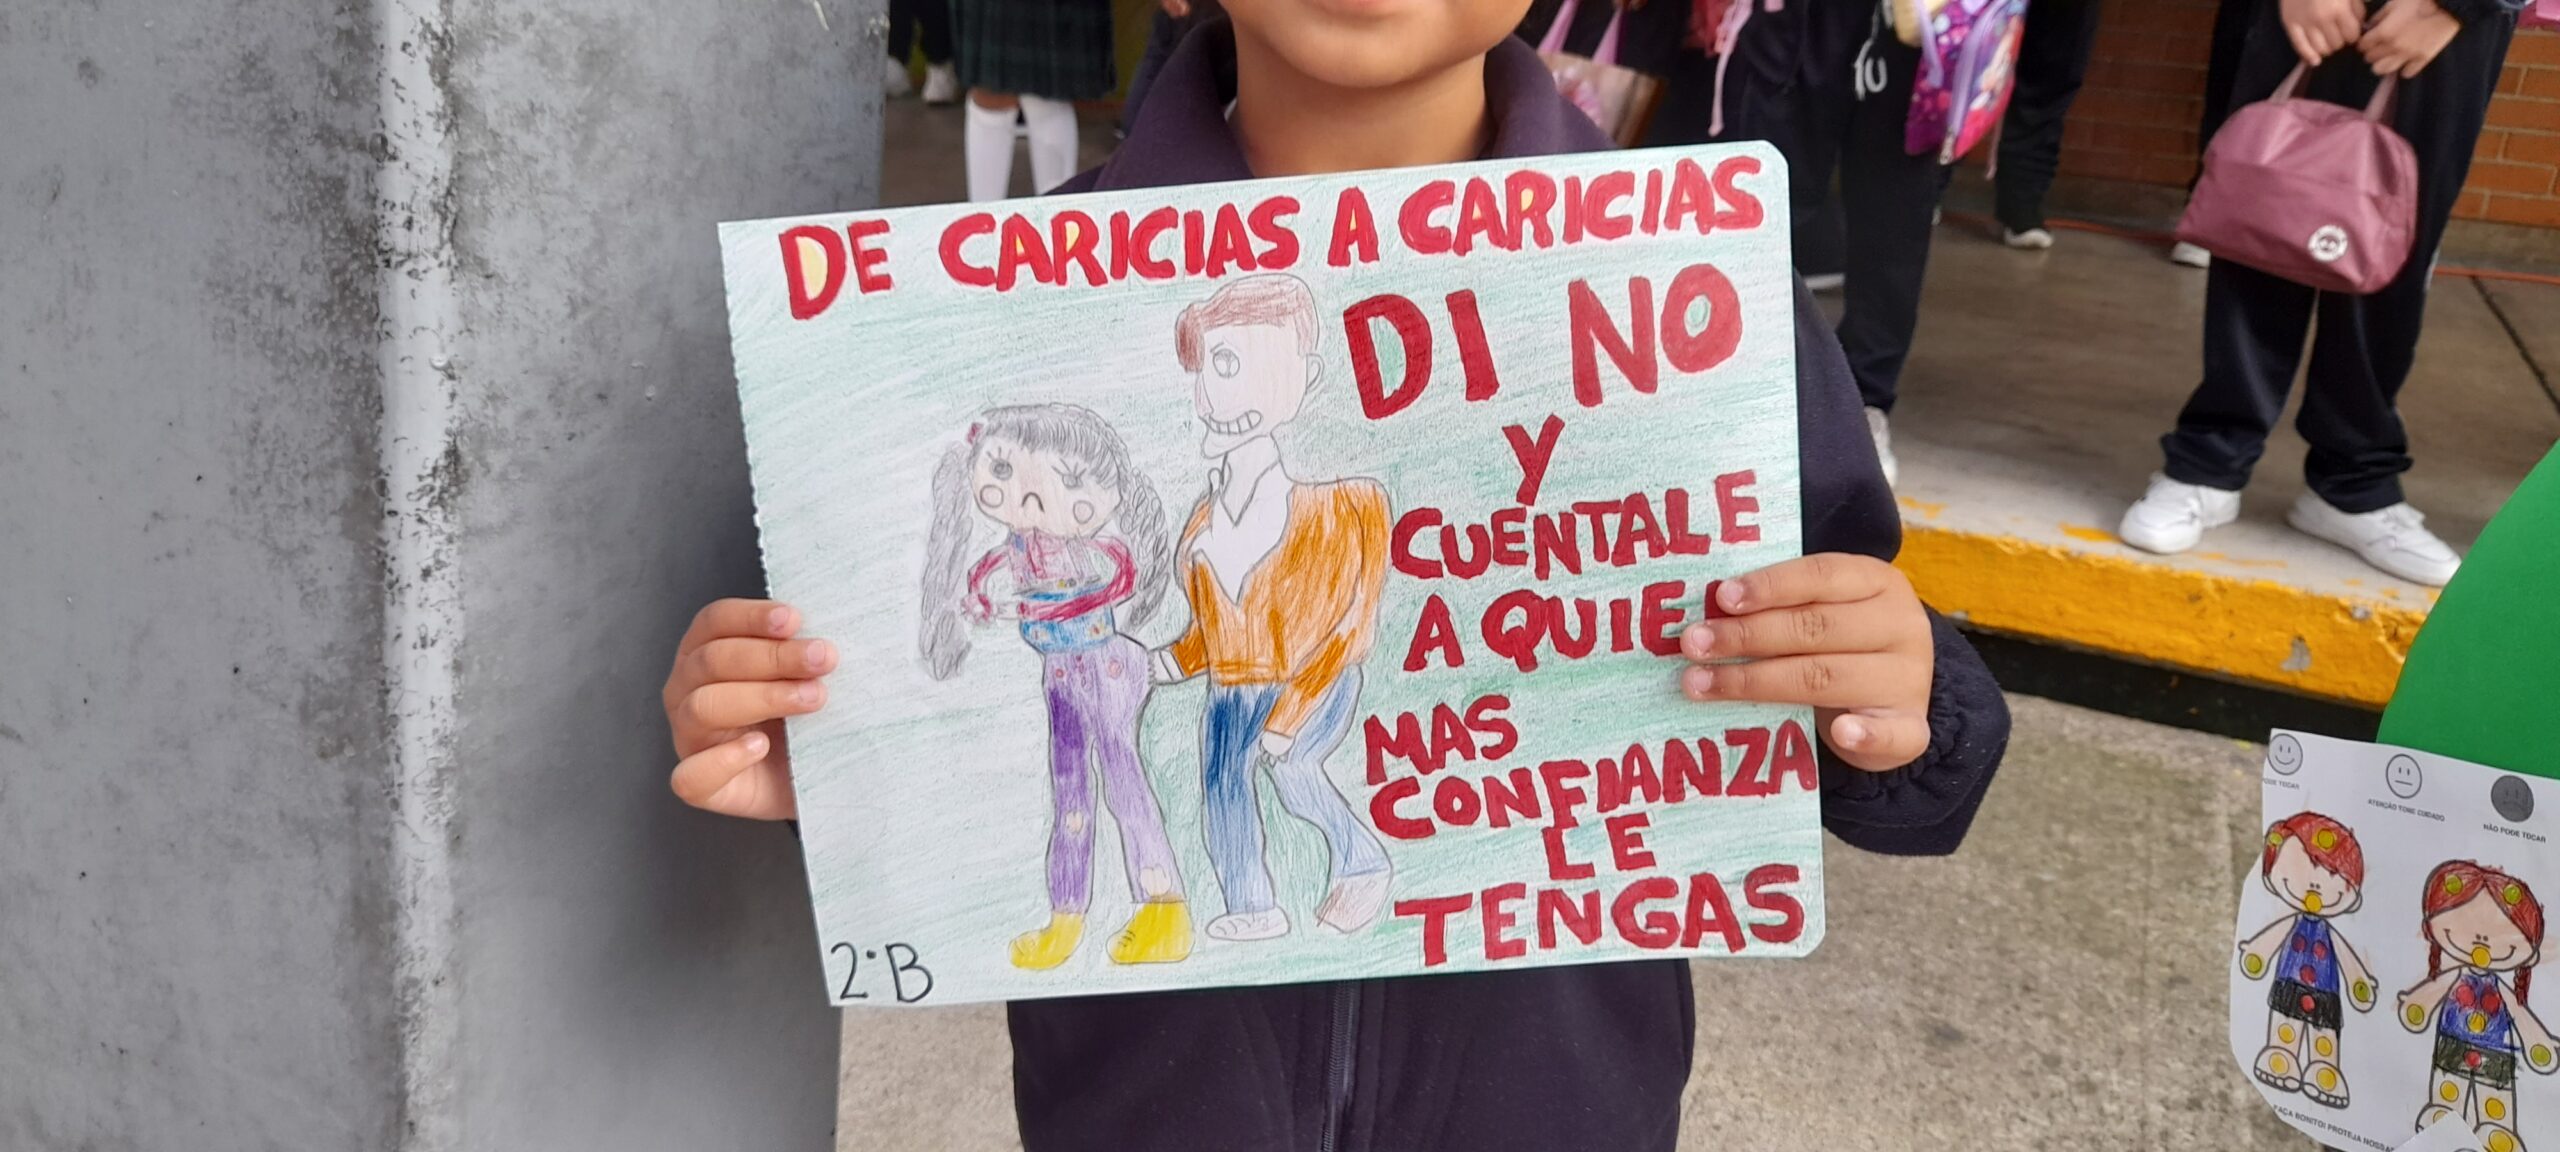 DE CARICIAS A CARICIAS
DI NO
Y
CUENTALE
A QUIE
MAS
CONFIANZA
LE
TENGAS
2°B
PODE TOCAR
ATENÇÃO TOME CUIDADO
NÃO PODE TOCAR
FAÇA BONITO! PROTEJA NOSSAS